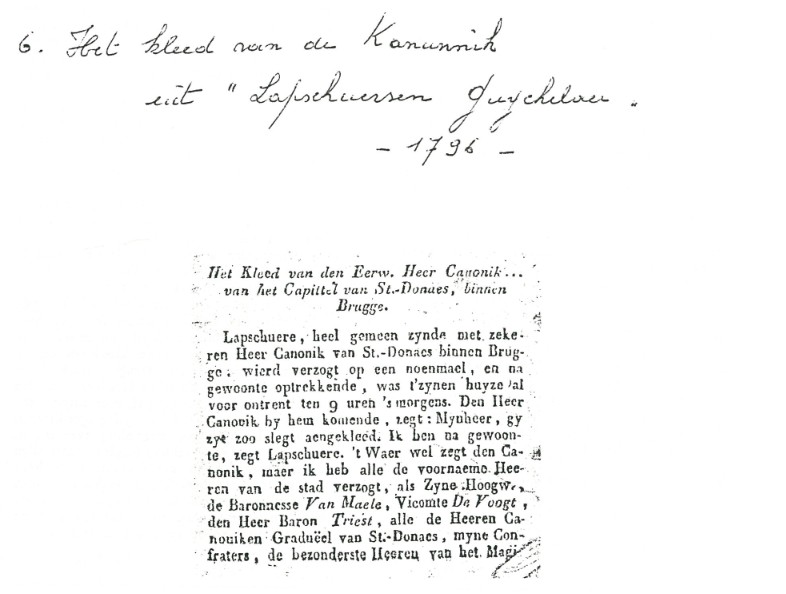 6. Het kleed van de Kanunnik
uit "Lapschuersen Guychelaer".
- 1796 -
Het Kleed van den Eerw. Heer Canonik...
van het Capittel van St.-Donaes, binnen
Brugge.
Lapschuere, heel gemeen zynde met zeke-
ren Heer Canonik van St.-Donaes binnen Brug-
ge, wierd verzogt op een noenmael, en na
gewoonte optrekkende, was t'zynen huyze al
voor ontrent ten 9 uren 's morgens. Den Heer
Canonik by hem komende, zegt: Mynheer, gy
zyt zoo slegt aengekleed. Ik ben na gewoon-
te, zegt Lapschuere. 't Waer wel zegt den Ca-
nonik, maer ik heb alle de voornaeme Hee-
ren van de stad verzogt, als Zyne Hoogw.,
de Baronnesse Van Maele, Vicomte De Voogt,
den Heer Baron Triest, alle de Heeren Ca-
noniken Gradueël van St.-Donaes, myne Con-
fraters, de bezonderste Heeren van het Magi-